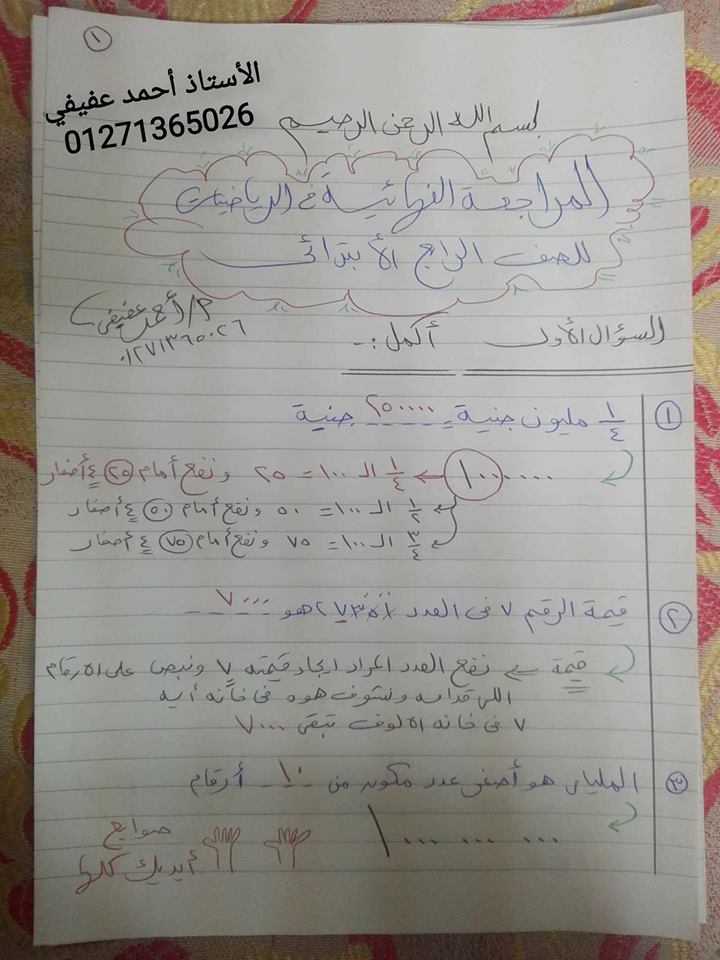 ١
الأستاذ أحمد عفيفي
01271365026
بسم الله الرحمن الرحيم
المراجعة النهائية فى الرياضيات
للصف الرابع الأبتدائى
م/أحمد عفيفى
٠١٢٧١٣٦٥٠٢٦
السؤال الأول أكمل :-
١ ١/٤ مليون جنية = ٢٥٠٠٠٠ جنية
١٠٠٠٠٠٠ ← ١/٤ الـ ١٠٠ = ٢٥ ونضع أمام ٢٥ ٤ أصفار
١/٢ الـ ١٠٠ = ٥٠ ونضع أمام ٥٠ ٤ أصفار
٣/٤ الـ ١٠٠ = ٧٥ ونضع أمام ٧٥ ٤ أصفار
٢ قيمة الرقم ٧ فى العدد هو ٧٠٠٠
قيمة نضع العدد المراد ايجاد قيمته ٧ ونبص على الارقام
اللى قدامه ونشوف هوه فى خانه أيه
٧ فى خانه الالوف تبقى ٧٠٠٠
٣ المليار هو أصغر عدد مكون من ١٠ أرقام
١٠٠٠ ٠٠٠ ٠٠٠
صوابع
أيديك كلها